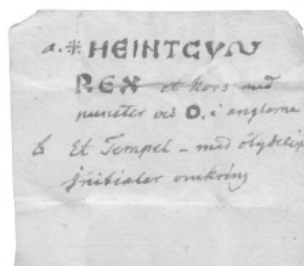 a. ⁜ HEINTGVN
REX et kors med
puncter ved O. i anglerne
b Et Tempel – med utydelige
initialer omkring